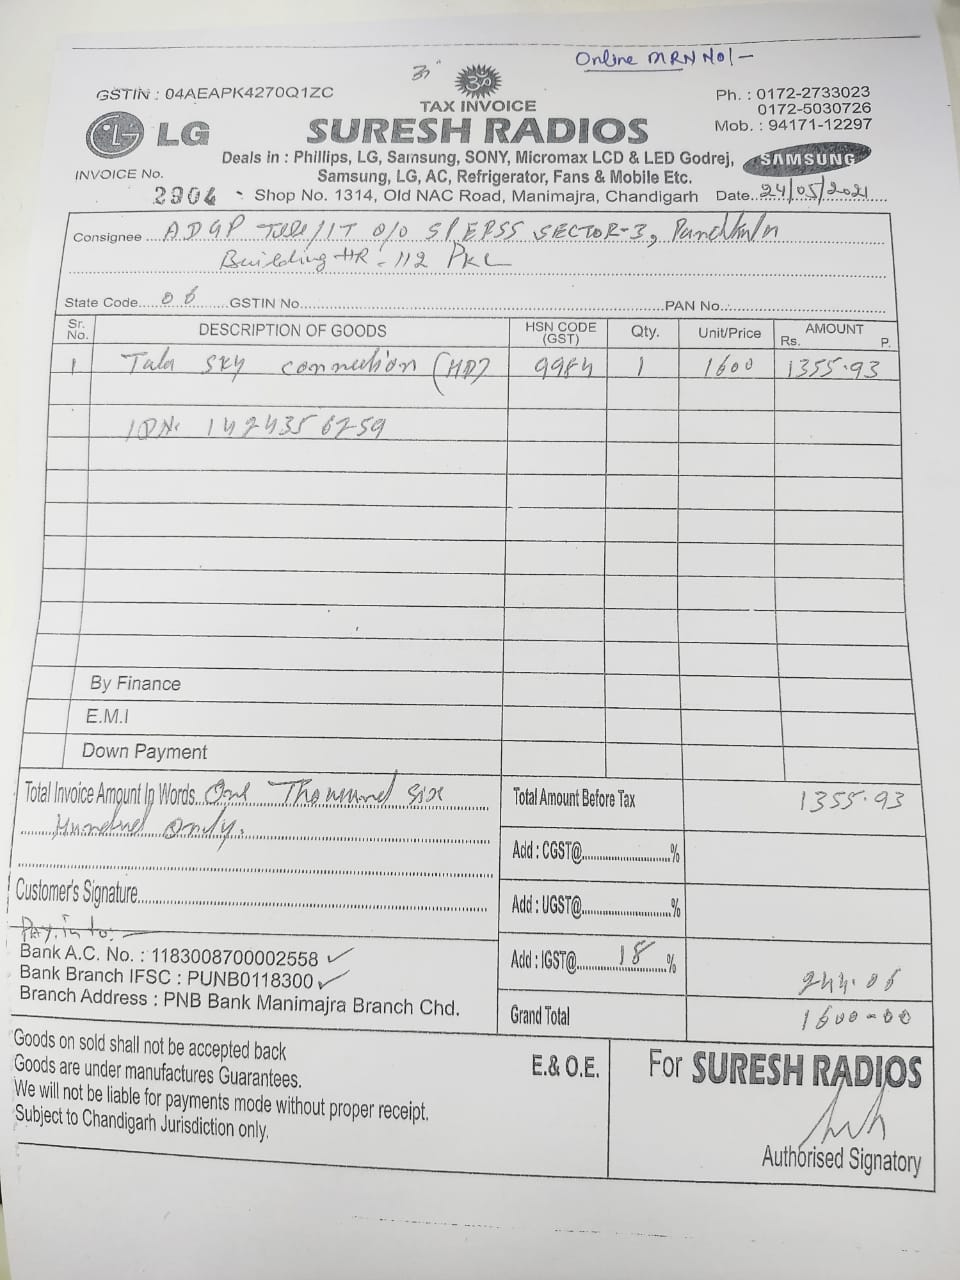 Online MRN No/-
ॐ
GSTIN : 04AEAPK4270Q1ZC
Ph. : 0172-2733023
0172-5030726
Mob. : 94171-12297
TAX INVOICE
LG
SURESH RADIOS
Deals in : Phillips, LG, Samsung, SONY, Micromax LCD & LED Godrej,
Samsung, LG, AC, Refrigerator, Fans & Mobile Etc.
SAMSUNG
INVOICE No.
2904
Shop No. 1314, Old NAC Road, Manimajra, Chandigarh
Date..24/05/2021
Consignee ...ADGP Tele/IT O/O SP ERSS SECTOR-3,
Building HR-112 PKL
State Code.....06........GSTIN No..............................PAN No...............
Sr. No. DESCRIPTION OF GOODS HSN CODE (GST) Qty. Unit/Price AMOUNT Rs. P.
1 Tata SKY connection (HD) 9984 1 1600 1355.93
IDN. 1424356259
By Finance
E.M.I
Down Payment
Total Invoice Amount In Words One Thousand Six
Hundred Only.
Total Amount Before Tax 1355.93
Add : CGST@....................%
Customer's Signature..............................
Add : UGST@....................%
Pay. in to:-
Bank A.C. No. : 1183008700002558 ✓
Bank Branch IFSC : PUNB0118300 ✓
Branch Address : PNB Bank Manimajra Branch Chd.
Add : IGST@.......18......% 244.06
Grand Total 1600-00
Goods on sold shall not be accepted back
Goods are under manufactures Guarantees.
We will not be liable for payments mode without proper receipt.
Subject to Chandigarh Jurisdiction only.
E.& O.E.
For SURESH RADIOS
Authorised Signatory